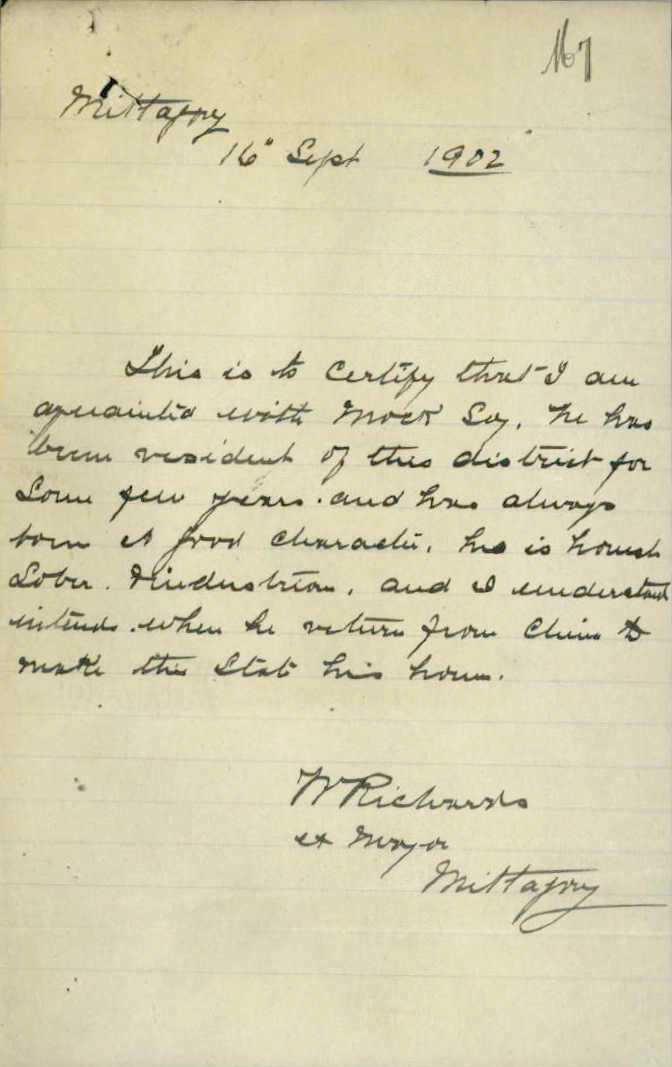 167
Mittagong
16" Sept 1902
This is to certify that I am
acquainted with Mock Soy. he has
been resident of this district for
some few years. and has always
born a good character. he is honest
sober. & industrious. and I understand
intends. when he return from China to
make this State his home.
W Richards
ex Mayor
Mittagong